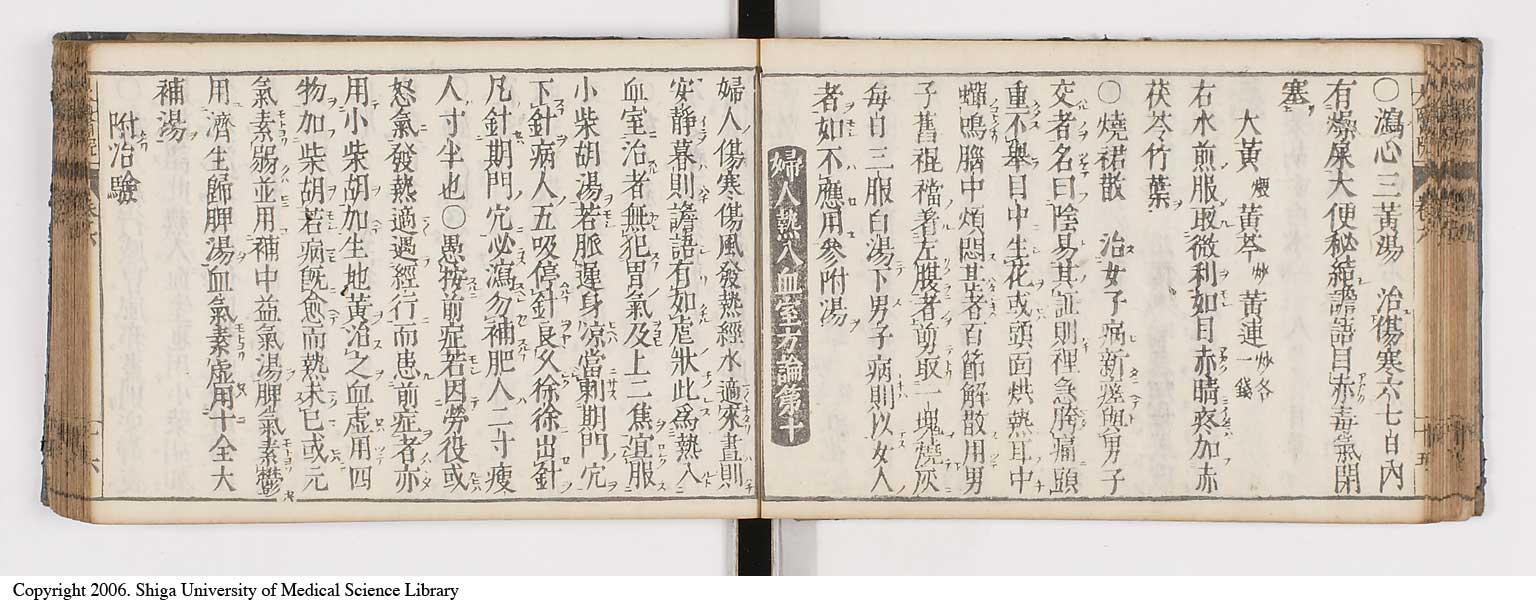 〇瀉心三黃湯 治傷寒六七日內
有燥屎大便秘結譫語目赤毒氣閉
塞
大黃煨 黃芩炒 黃連炒各一錢
右水煎服取微利如目赤睛疼加赤
茯苓竹葉
〇燒裙散 治女子病新瘥與男子
交者名曰陰易其証則裡急胯痛頭
重不舉目中生花或頭面烘熱耳中
蟬鳴腦中煩悶甚者百節解散用男
子舊裩襠著左腹者剪取一塊燒灰
每白三服白湯下男子病則以女人
者如不應用參附湯
婦人熱入血室方論第十
婦人傷寒傷風發熱經水適來晝則
安靜暮則譫語有如虐狀此爲熱入
血室治者無犯胃氣及上二焦宜服
小柴胡湯若脈遲身凉當刺期門穴
下針病人五吸停針良久徐徐出針
凡針期門穴必瀉勿補肥人二寸瘦
人寸半也〇愚按前症若因勞役或
怒氣發熱適遇經行而患前症者亦
用小柴胡加生地黃治之血虛用四
物加柴胡若病旣愈而熱未已或元
氣素弱並用補中益氣湯脾氣素鬱
用濟生歸脾湯血氣素虛用十全大
補湯
附治驗
Copyright 2006. Shiga University of Medical Science Library